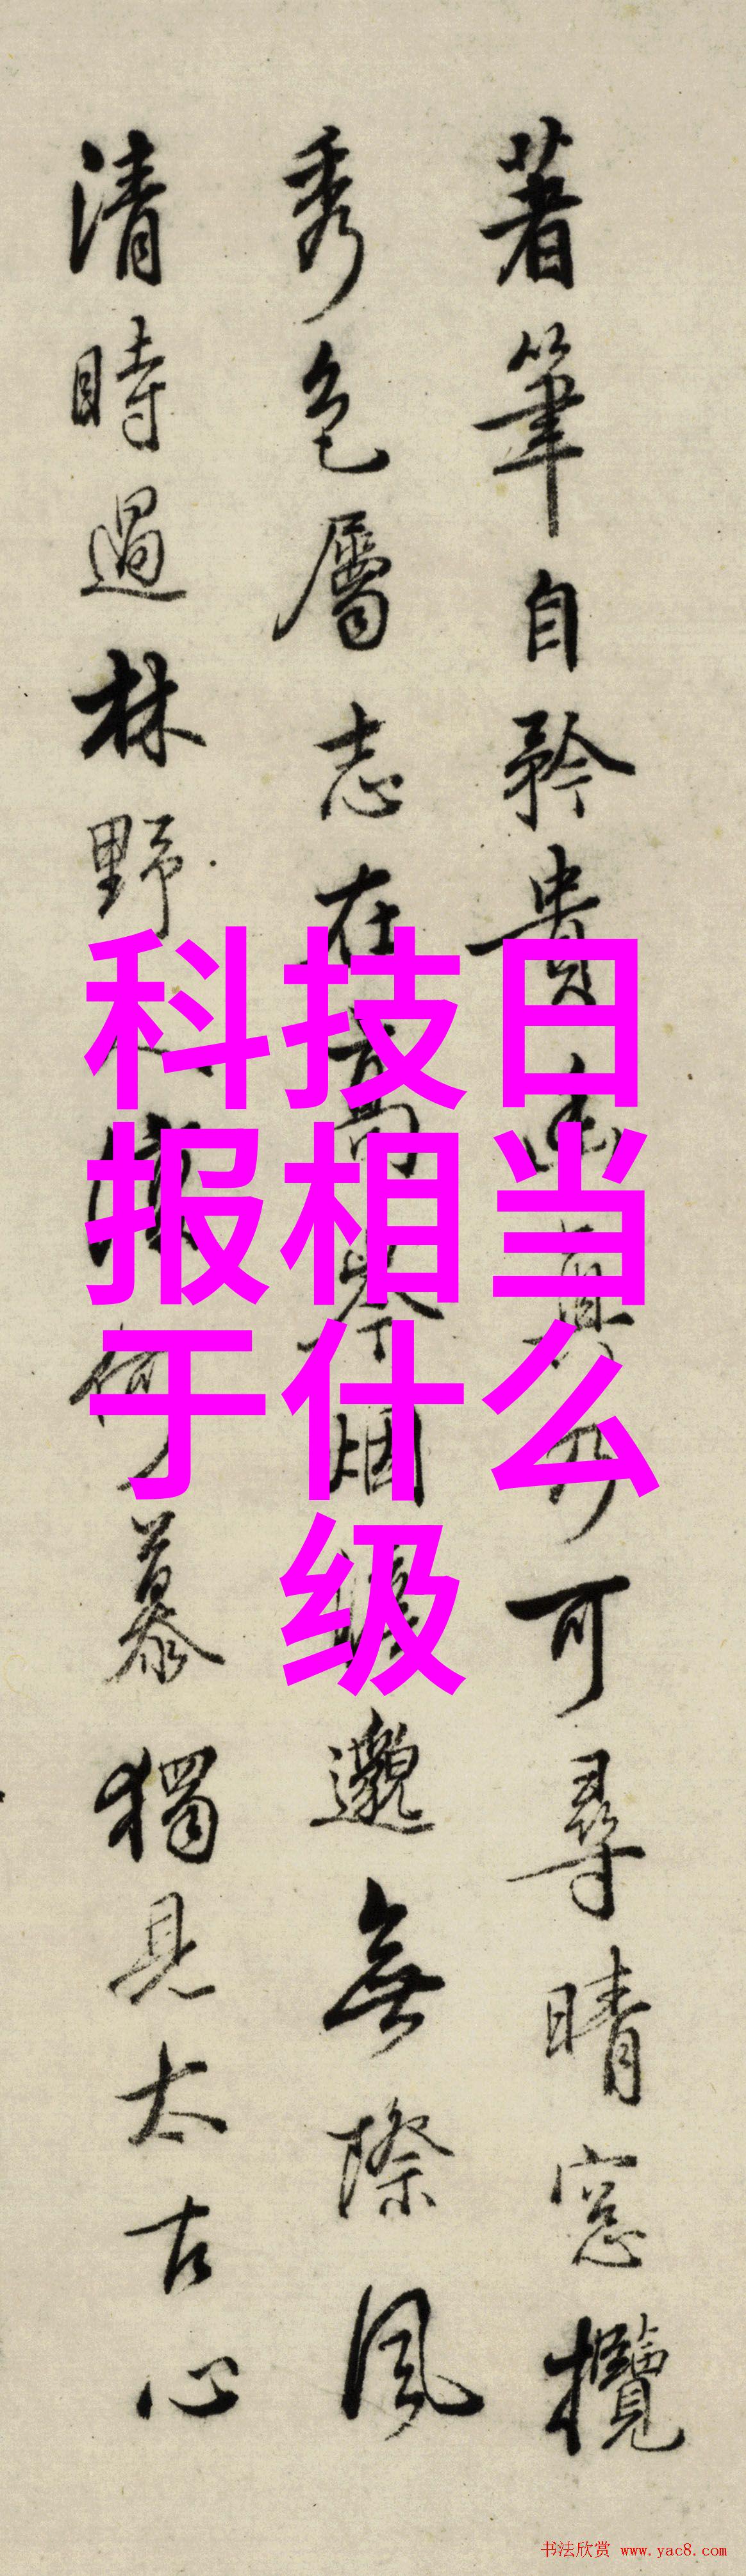 著筆自矜貴 可尋晴窓攬
秀色屬志在高 烟 邈無際風
清時過林野 慕獨見太古心
科技日
报相当
于什么
级
书法欣赏 www.yac8.com